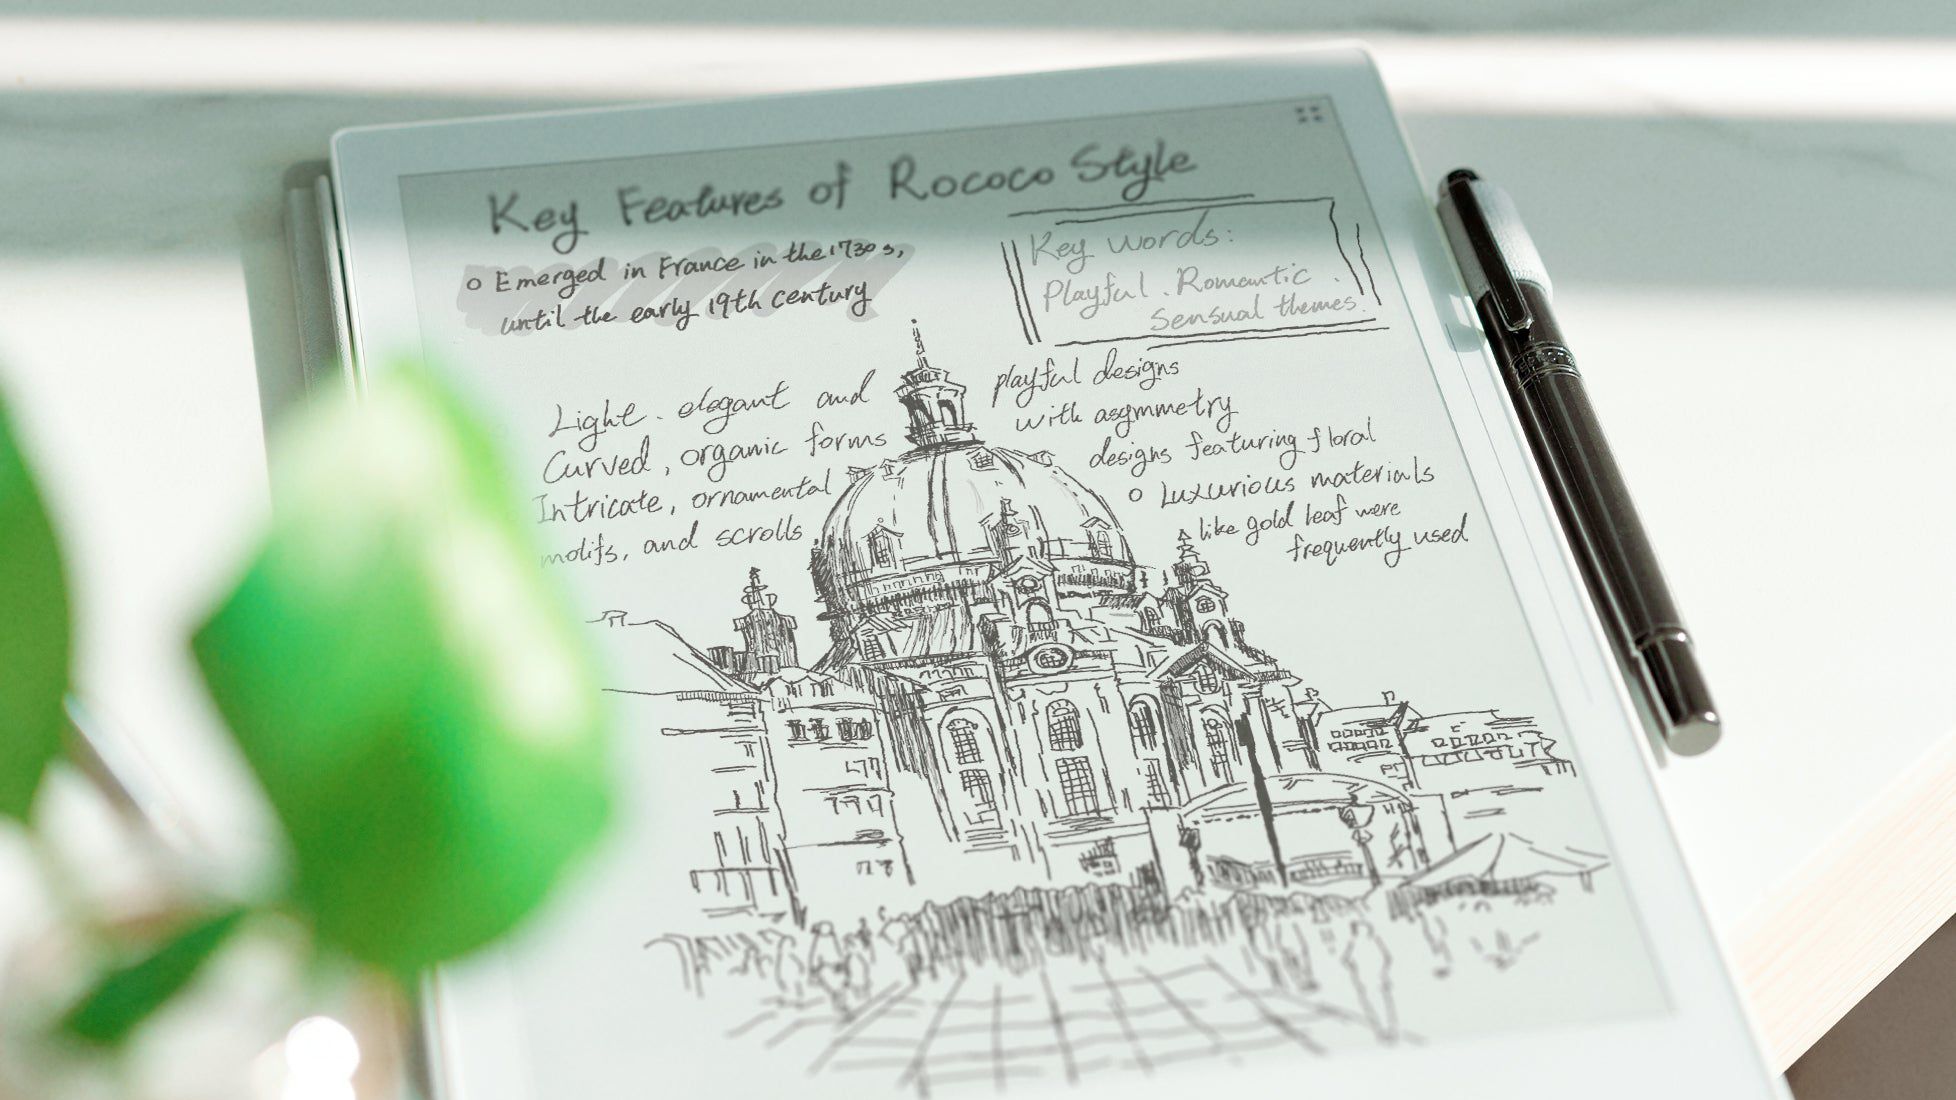 Key Features of Rococo Style
o Emerged in France in the 1730s,
until the early 19th century
Key words:
Playful . Romantic .
Sensual themes.
Light . elegant and
Curved , organic forms
Intricate, ornamental
motifs, and scrolls
playful designs
with asymmetry
designs featuring floral
o Luxurious materials
like gold leaf were
frequently used